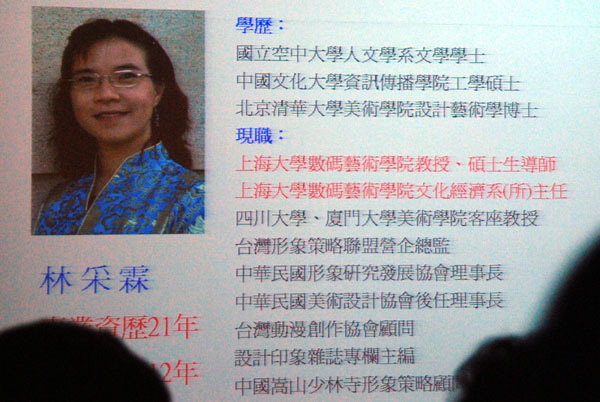 學歷：
國立空中大學人文學系文學學士
中國文化大學資訊傳播學院工學碩士
北京清華大學美術學院設計藝術學博士
現職：
上海大學數碼藝術學院教授、碩士生導師
上海大學數碼藝術學院文化經濟系(所)主任
四川大學、廈門大學美術學院客座教授
台灣形象策略聯盟營企總監
中華民國形象研究發展協會理事長
中華民國美術設計協會後任理事長
台灣動漫創作協會顧問
設計印象雜誌專欄主編
中國嵩山少林寺形象策略顧
林采霖
業資歷21年
2年